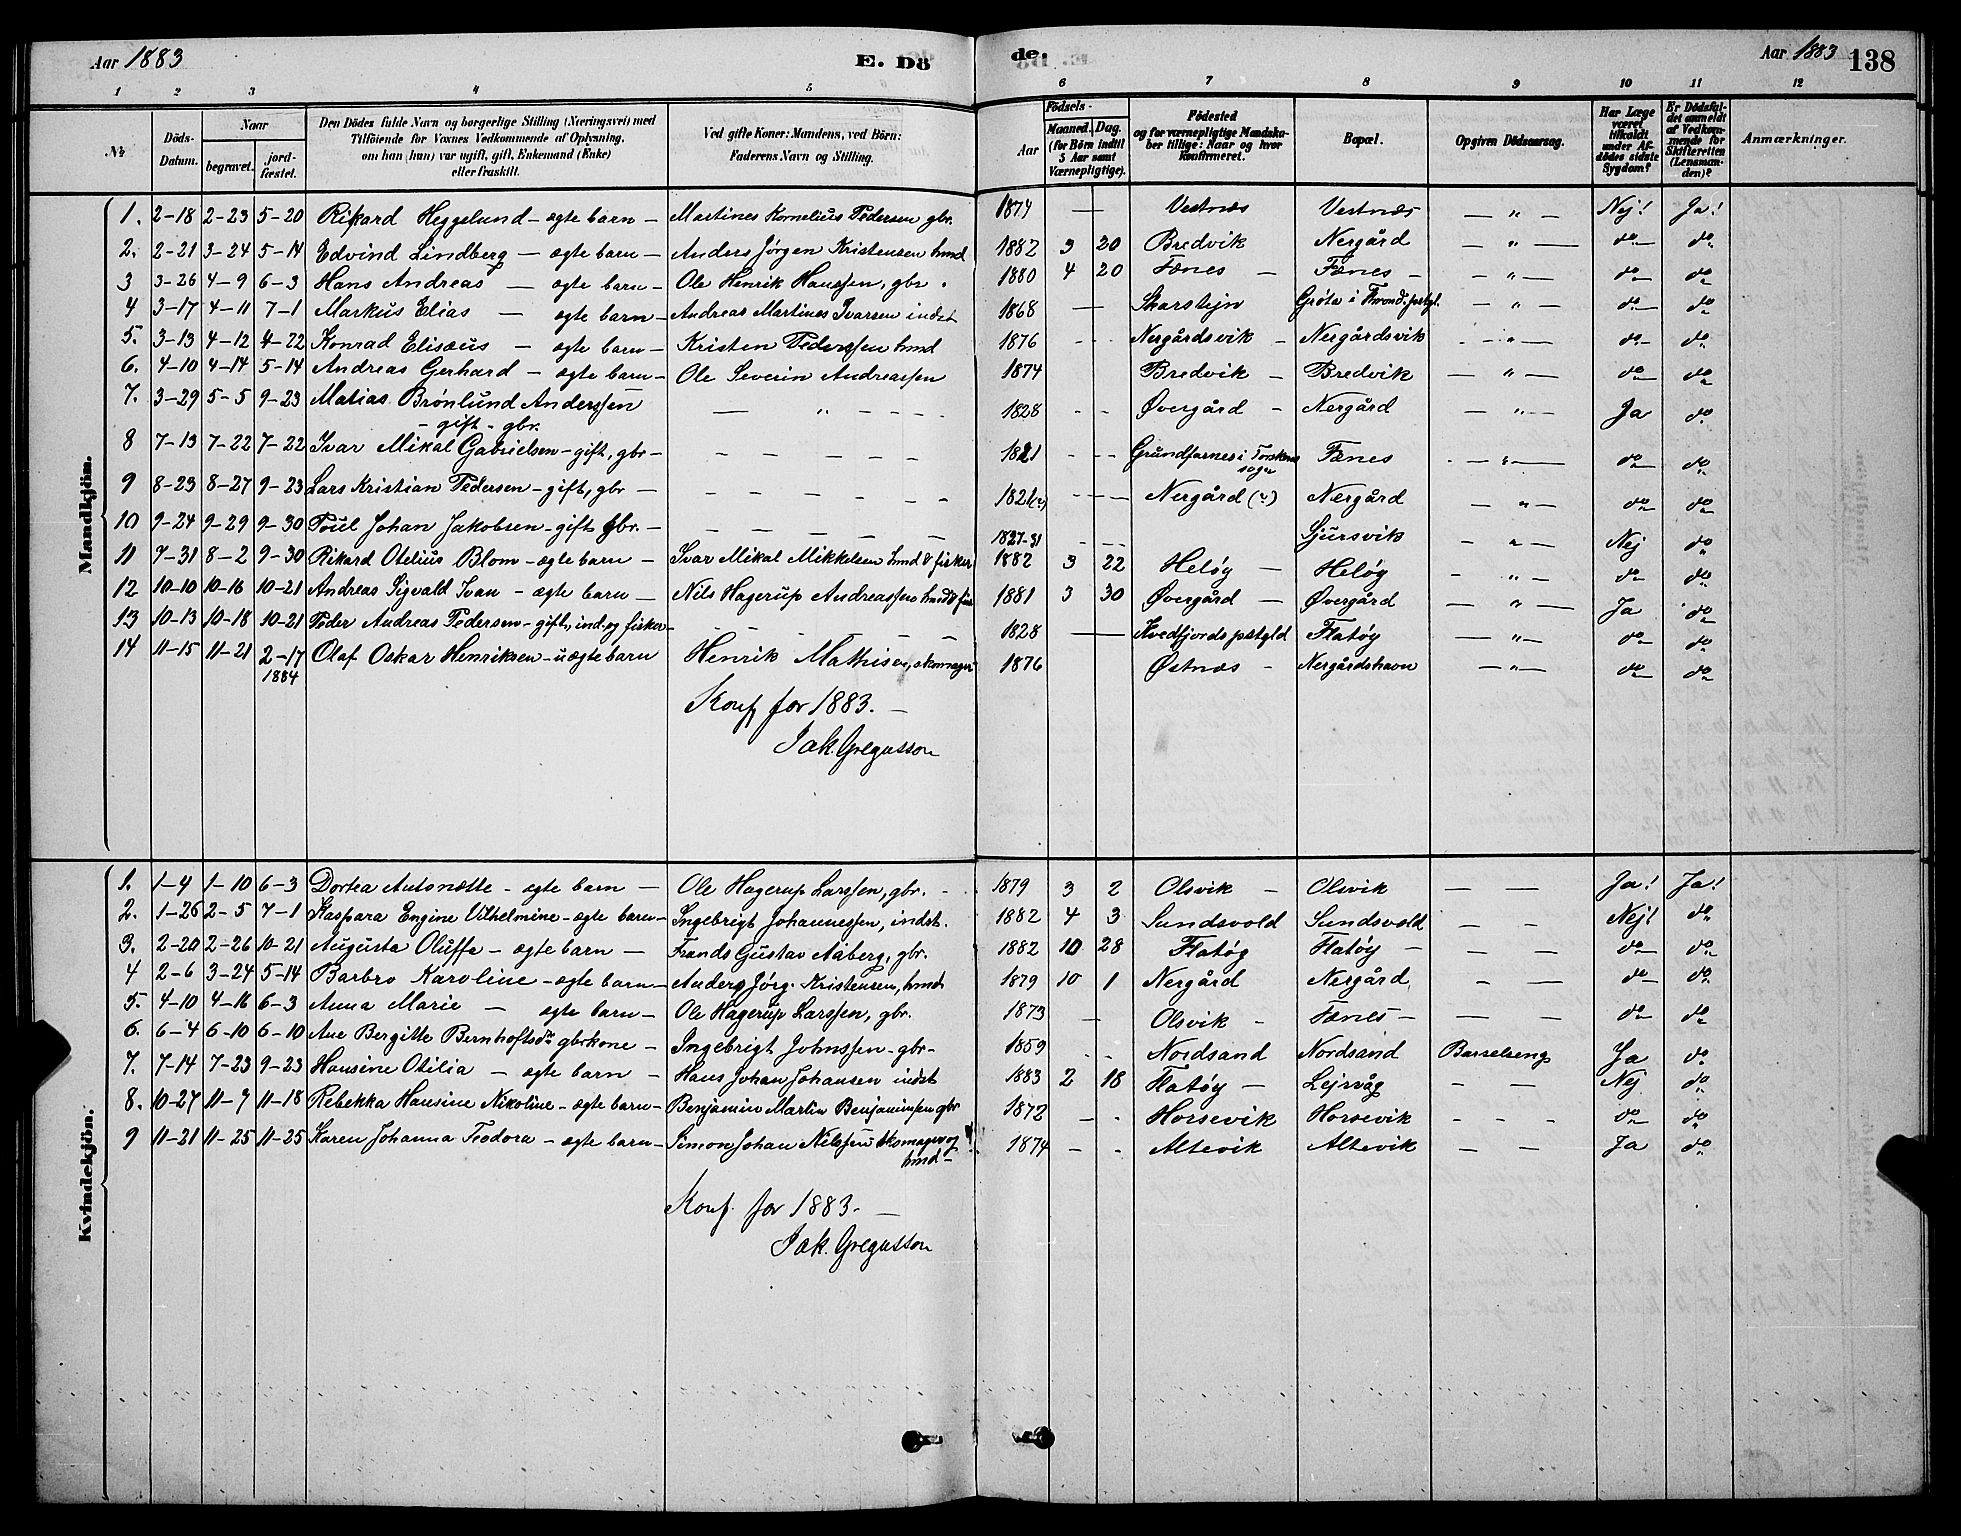 Aar 1883 E. Dö de. Aar 1883 138
1 2 3 4 5 6 7 8 9 10 11 12
№
Döds-Datum.
Naar
begravet.
jord-fæstet.
Den Dödes fulde Navn og borgerlige Stilling (Næringsvei) med
Tilföiende for Voxnes Vedkommende af Oplysning,
om han (hun) var ugift, gift, Enkemand (Enke)
eller fraskilt.
Ved gifte Koner: Mandens, ved Börn:
Faderens Navn og Stilling.
Aar
Födsels-
Maaned. Dag.
(for Börn indtil 5 Aar samt Værnepligtige).
Födested
og for værnepligtige Mandska-
ber tillige: Naar og hvor
konfirmeret.
Bopæl.
Opgiven Dödsaarsag.
Har Læge været tilkaldt under Afdödes sidste Sygdom?
Er Dödsfaldet anmeldt af Vedkommende for Skifteretten (Lensmanden)?
Anmærkninger.
Mandkjön.
1. 2-18 2-23 5-20 Rikard Heggelund - ægte barn - Martines Kornelius Pedersen gbr. 1874 — Vestnæs Vestnæs — " — Nej! Ja!
2. 2-21 3-24 5-14 Edvind Lindberg - ægte barn - Anders Jørgen Kristensen hmd 1882 3 20 Bredvik Nergård — " — do do
3 3-26 4-9 6-3 Hans Andreas — ægte barn - Ole Henrik Hanssen, gbr. 1880 4 20 Fænes - Fænes - — " — do do
4 3-17 4-11 7-1 Markus Elias — ægte barn - Andreas Martines Ivarsen indst 1868 — Skarstejn Grøta i Trond. pstgl. — " — do do
5. 3-13 4-12 4-22 Konrad Elisæus — ægte barn - Kristen Pederssen hmd 1876 - - Nergårdsvik - Nergårdsvik — " — do do
6. 4-10 4-14 5-14 Andreas Gerhard - ægte barn - Ole Severin Andreassen 1874 Bredvik - Bredvik — " — do do
7. 3-29 5-5 9-23 Matias Brønlund Anderssen — " - - - - 1828 - - Øvergård - Nergård — " — Ja do
- gift - gbr.
8 7-13 7-22 7-22 Ivar Mikal Gabrielsen - gift, gbr - 1821 - - - Grundfarnes i Torskens Fænes - " — do do
sogn
9 8-23 8-27 9-23 Lars Kristian Pedersen - gift, gbr — 1821(?) - - - Nergård (?) Nergård " — do do
10 9-24 9-29 9-30 Poul Johan Jakobsen - gift gbr. - 1827-31 - - - Sjursvik - " — Nej do
11 7-31 8-2 9-30 Rikard Otelius Blom - ægte barn - Ivar Mikal Mikkelsen hmd & fisker 1882 3 22 Heløy — Heløy - " — do do
12 10-10 10-16 10-21 Andreas Sigvald Ivan - ægte barn — Nils Hagerup Andreassen hmd & fisk 1881 3 30 Øvergård — Øvergård — " — Ja do
13 10-13 10-18 10-21 Peder Andreas Pedersen - gift, ind. og fisker - 1828 — Kvedfjords pstgld Flatøy — " — do do
14 11-15 11-21 2-17 Olaf Oskar Henriksen - uægte barn Henrik Mathisen, skomager 1876 Østnæs - Nergårdshavn — " — do do
1884
Konf for 1883. —
Jak. Gregusson
Kvindekjön.
1. 1-4 1-10 6-3 Dortea Antonette - ægte barn — Ole Hagerup Larssen, gbr. - 1879 3 2 Olsvik - Olsvik — — Ja! Ja!
2. 1-26 2-5 7-1 Kaspara Engine Vilhelmine - ægte barn - Ingebrigt Johannessen, indst. 1882 4 3 Sundsvold Sundsvold - - Nej! do
3. 2-20 2-26 10-21 Augusta Oluffa - ægte barn — Frands Gustav Aaberg, gbr. 1882 10 28 Flatøy Flatøy — - — do do
4 2-6 3-24 5-14 Barbro Karoline - ægte barn - Anders Jørg. Kristensen, hmd 1879 10 1 Nergård Nergård. - — do do
5. 4-10 4-16 6-3 Anna Marie — ægte barn - Ole Hagerup Larssen, gbr. 1873 — Olsvik - Fænes - — — do do
6. 6-4 6-10 6-10 Ane Bergitte Bernhoftsdtr gbrkone - Ingebrigt Johnssen - gbr - 1859 - - Nordsand Nordsand Barselseng Ja do
7. 7-14 7-23 9-23 Hansine Otilia - ægte barn - Hans Johan Johansen indst 1883 2 18 Flatøy — Lejrvåg - - Nej do
8. 10-27 11-7 11-18 Rebekka Hansine Nikoline - ægte barn - Benjamin Martin Benjaminsen gbr 1872 - - Horsevik Horsevik - - - do do
9 11-21 11-25 11-25 Karen Johanna Teodora - ægte barn - Simon Johan Nilssen skomager og 1874 - - Altevik Altevik — — Ja do
hmd -
Konf. for 1883. —
Jak. Gregusson